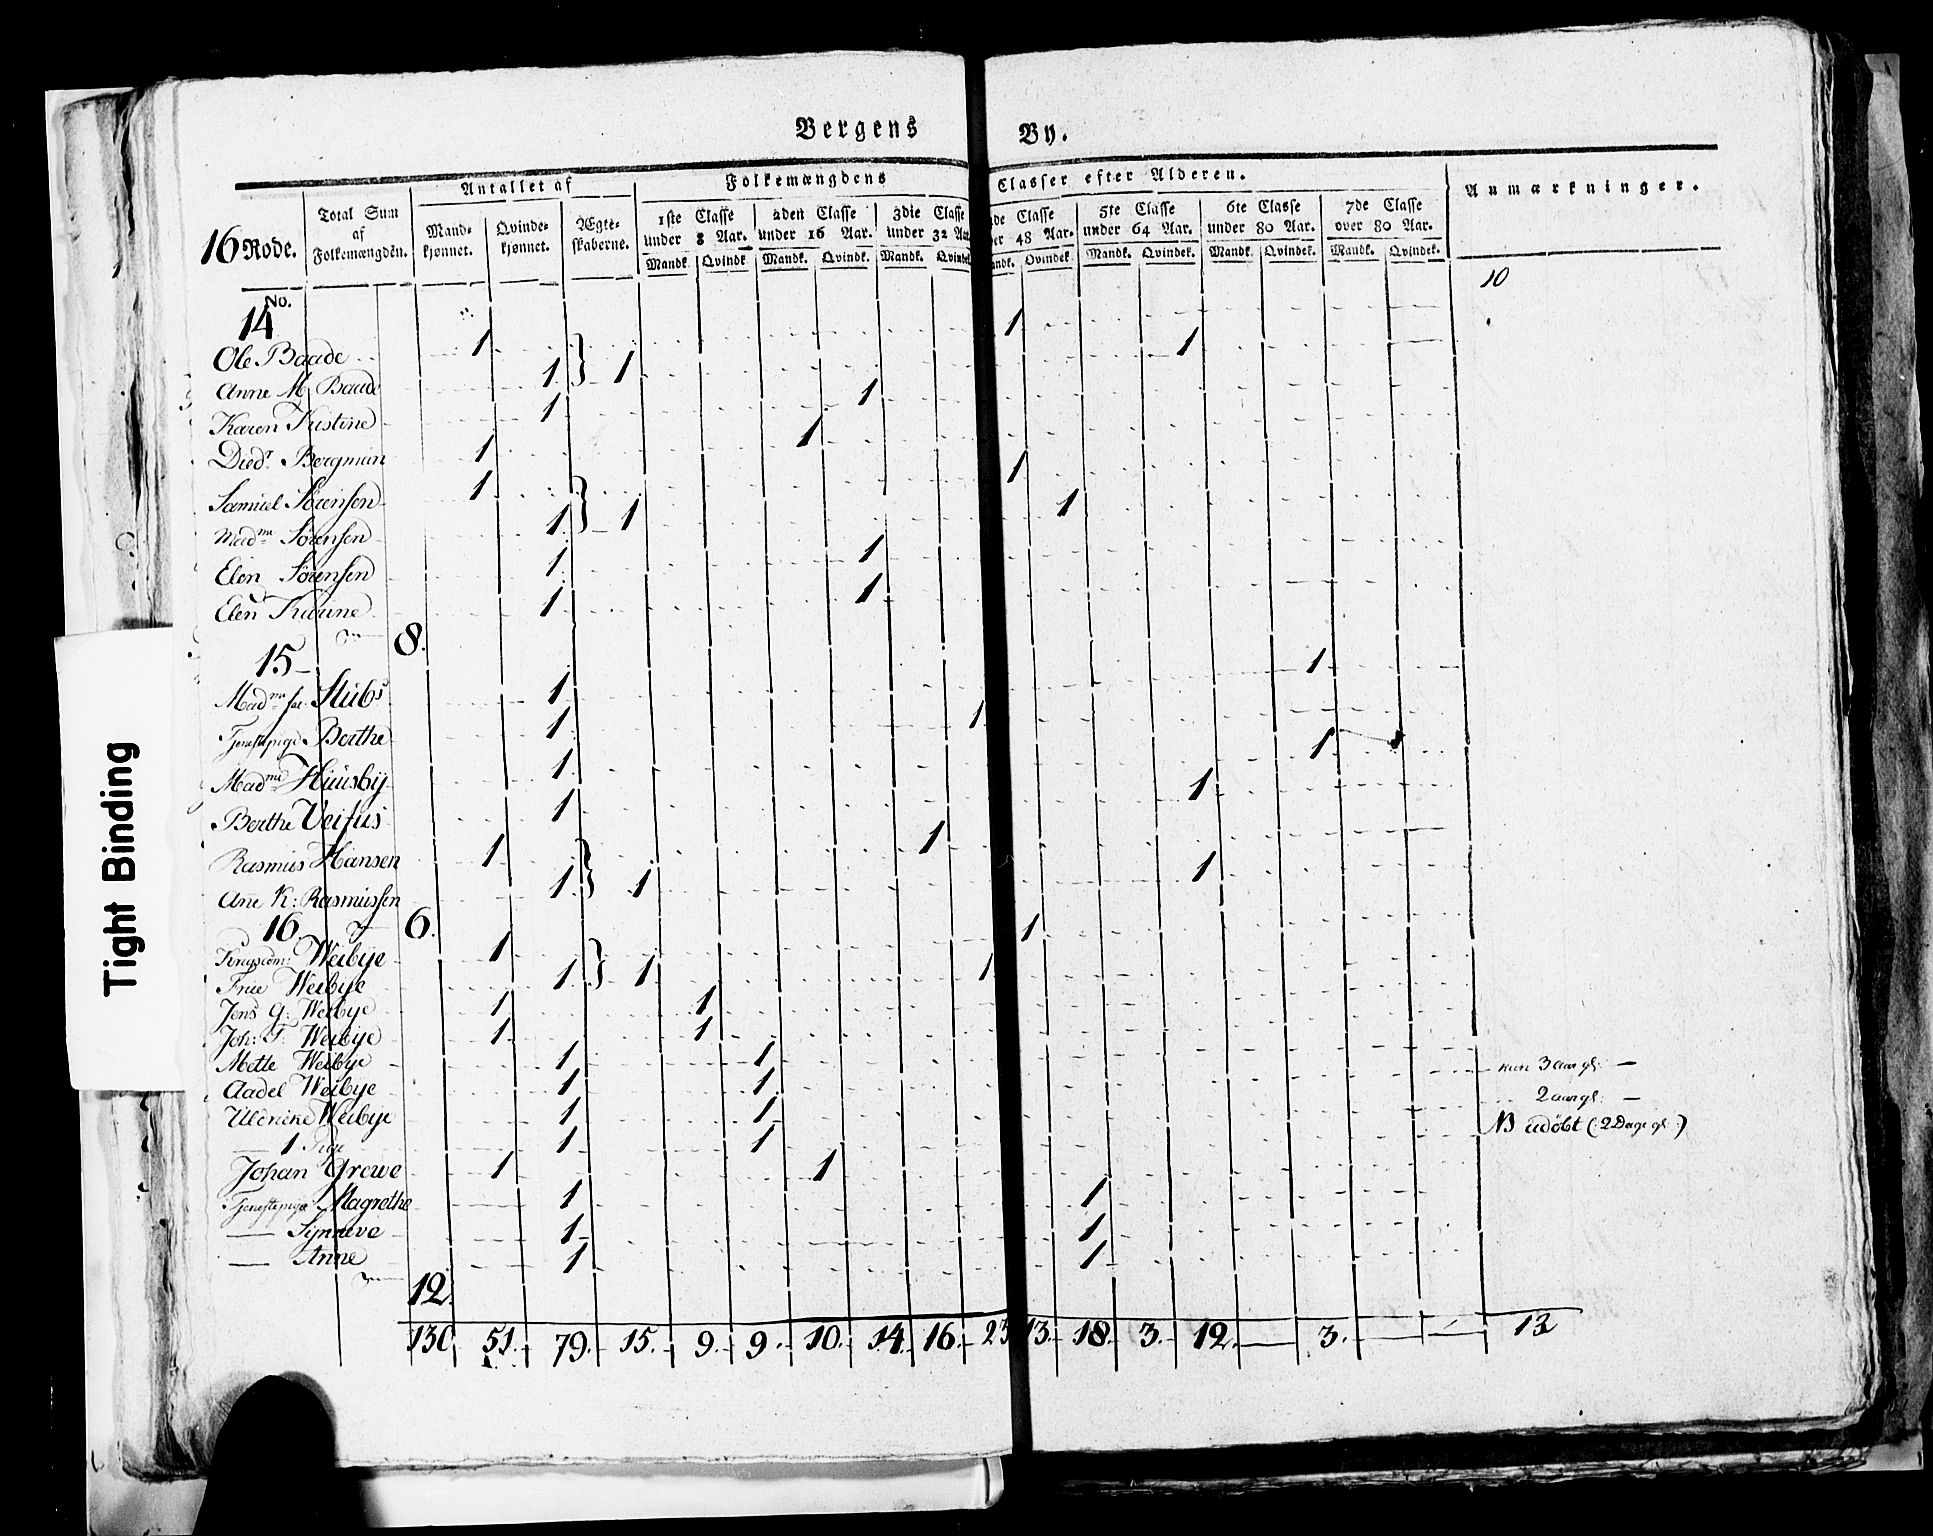 Bergens By.
Antallet af Folkemængdens Classer efter Alderen. Anmærkninger.
16 Rode. Total Sum af Folkemængdén. Mand-kjønnet. Qvinde-kjønnet. Ægte-skaberne. 1ste Classe under 8 Aar. 2den Classe under 16 Aar. 3die Classe under 32 Aar. de Classe er 48 Aar. 5te Classe under 64 Aar. 6te Classe under 80 Aar. 7de Classe over 80 Aar.
Mandk. Qvindk. Mandk. Qvindk. Mandk. Qvindek. andk. Qvindek. Mandk. Qvindek. Mandk. Qvindek. Mandk. Qvindek.
10
No.
14
Ole Baade 1 1 1
Anne M Baade 1 1 1
Karen Kristine 1 1
Diedr. Bergman 1 1
Samuel Sörensen 1 1
Madme Sörensen 1 1 1
Elen Sörensen 1 1
Elen 1 1
8.
15
Madme Stubs 1 1
Tjenestepige Berthe 1 1
Madme Huusby 1 1
Berthe Veitus 1 1
Rasmus Hansen 1 1
Ane K: Rasmussen 1 1 1
16 6.
Weibye 1 1
Frue Weibye 1 1 1
Jens G: Weibye 1 1
Joh: F: Weibye 1 1
Mette Weibye 1 1
Aadel Weibye 1 1 kun 3 aar gl: —
Uldrike Weibye 1 1 2 aar gl: —
— 1 Pige 1 1 NB udöbt (: 2 Dage gl :)
Johan Grewe 1 1
Tjenestepige Magrethe 1 1
— Synneve 1 1
— Anne 1 1
12.
130 51. 79. 15. 9. 9. 10. 14. 16. 23 13. 18. 3. 12. — 3. — — 13
Tight Binding